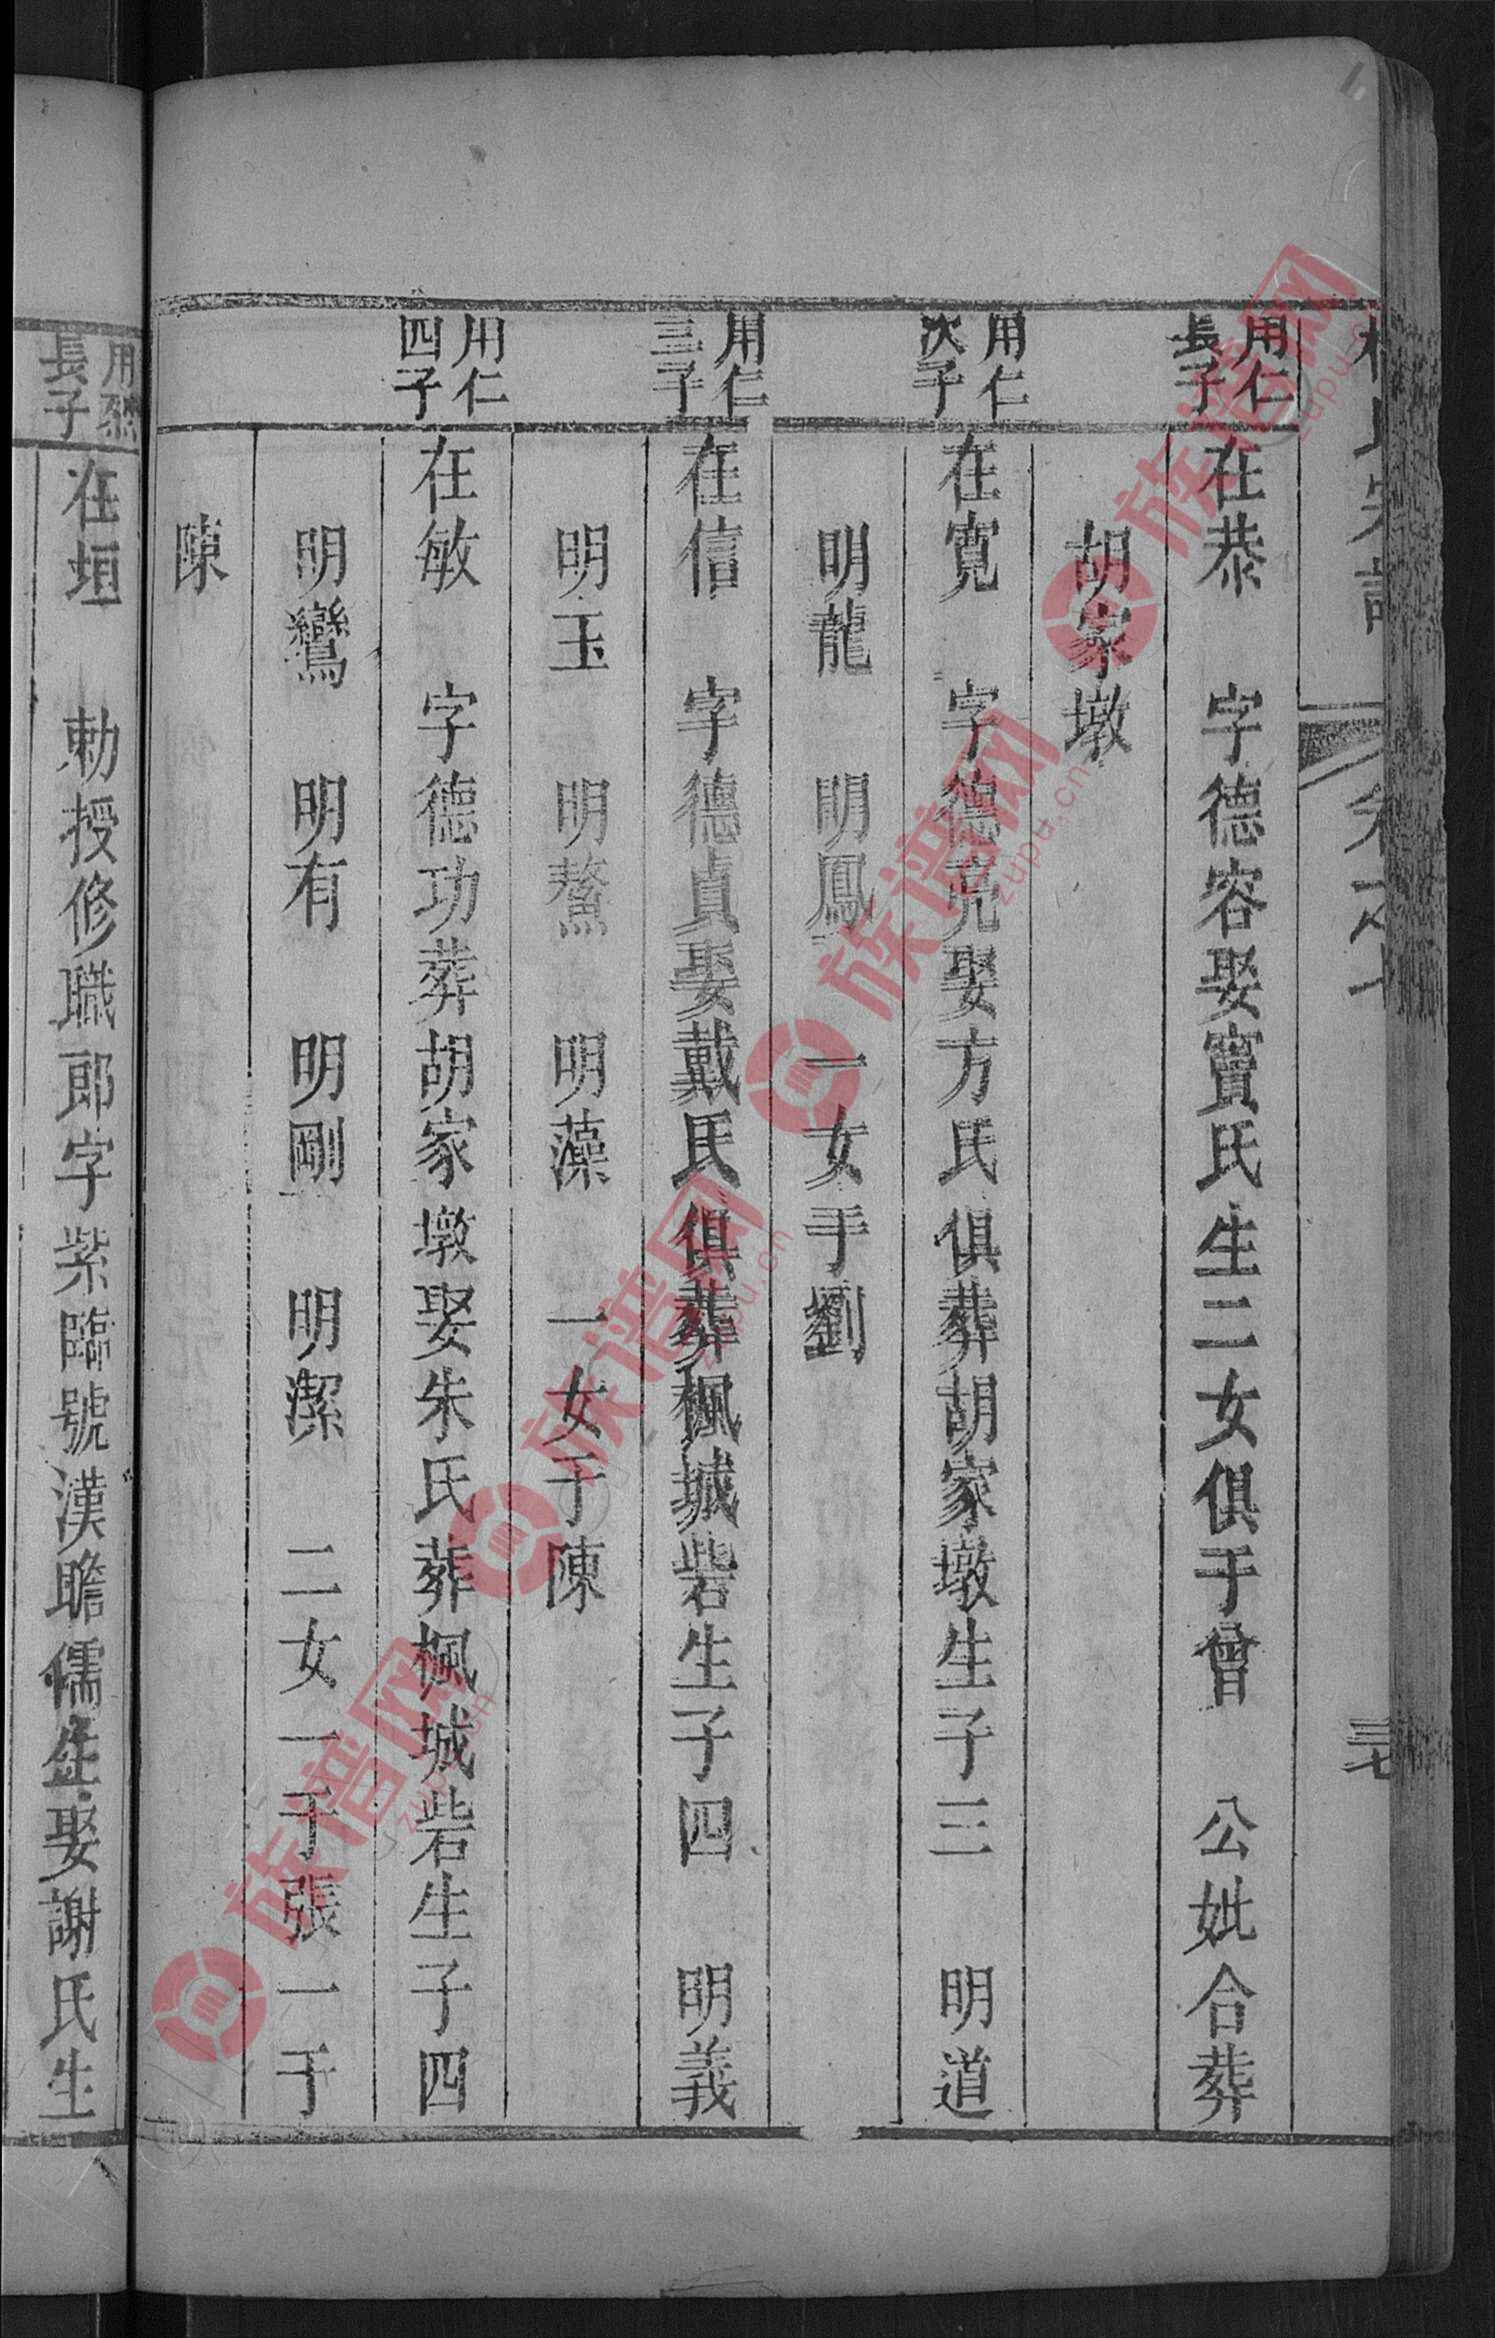 用仁
長子
在恭　字德容娶竇氏生二女俱于曾　公妣合葬
胡家墩
用仁
次子
在寬　字德亮娶方氏俱葬胡家墩生子三　明道
明龍　明鳳　一女于劉
用仁
三子
在信　字德貞娶戴氏俱葬楓城砦生子四　明義
明玉　明鰲　明藻　一女于陳
用仁
四子
在敏　字德功葬胡家墩娶朱氏葬楓城砦生子四
明鸞　明有　明剛　明潔　二女一于張一于
陳
長子
在垣　勅授修職郎字紫臨號漢瞻儒生娶謝氏生
族谱网
zupu.cn
族谱网
zupu.cn
族谱网
zupu.cn
族谱网
zupu.cn